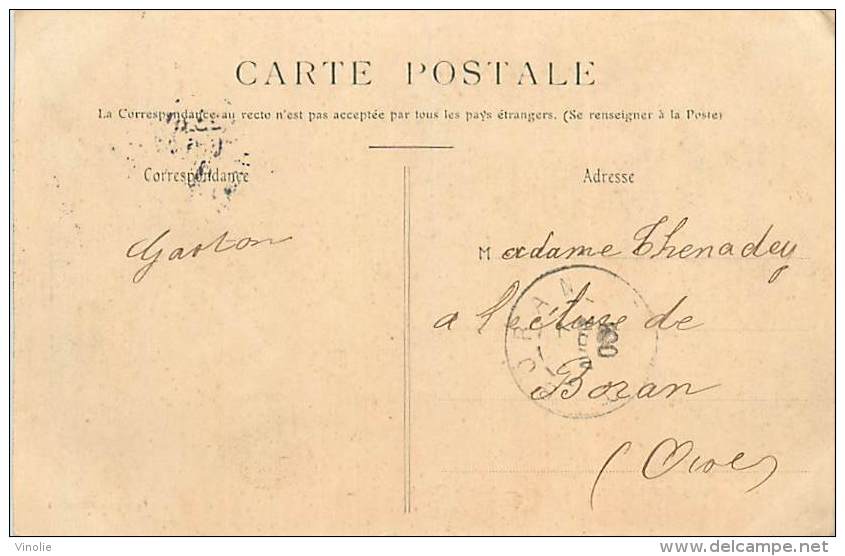 CARTE POSTALE
La Correspondance au recto n'est pas acceptée par tous les pays étrangers. (Se renseigner à la Poste)
Correspondance
Adresse
Gaston
Madame Thenadey
a l'écluse de
Boran
(Oise)
BORAN
Vinolie
delcampe.net